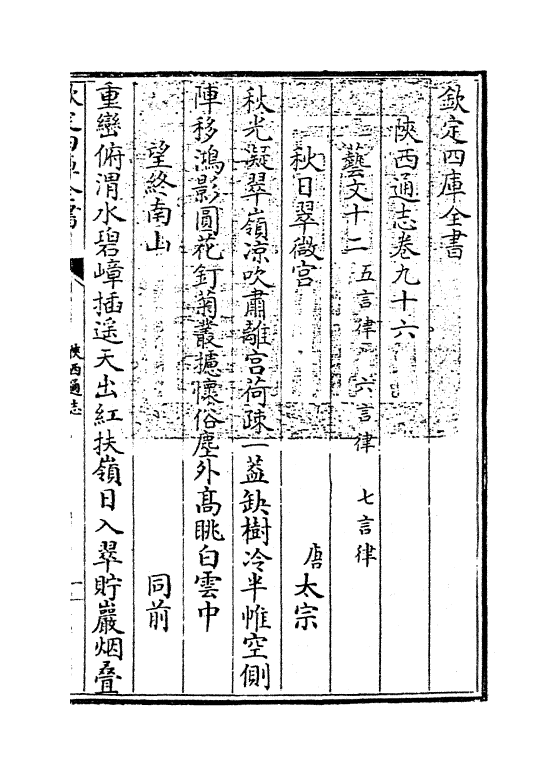 欽定四庫全書
陝西通志卷九十六
藝文十二 五言律 六言律 七言律
秋日翠微宮 唐太宗
秋光凝翠嶺凉吹肅離宮荷疎一葢缺樹冷半帷空側
陣移鴻影圓花釘菊叢攄懷俗塵外髙眺白雲中
望終南山 同前
重巒俯渭水碧嶂插遥天出紅扶嶺日入翠貯巖烟疊
欽定四庫全書
陜西通志
一